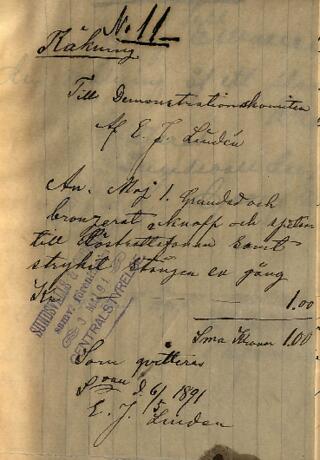 No. 11.
Räkning
Till Demonstrationskomiten
Af E. J. Lindén
An. Maj 1. Grundad och
bronzerat knapp och spetsen
till samt
strykit Stången en gång
Kr — 1.00
Sma Kronor 1.00
Som qvitteras
d. 6/5 1891
E. J. Linden
SUNDSVALLS
CENTRALSTYRELSE